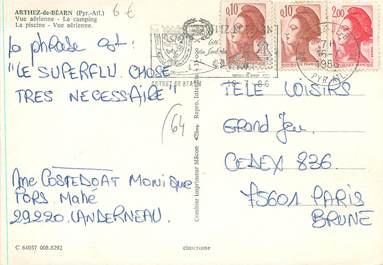 ARTHEZ-de-BÉARN (Pyr.-Atl.)
Vue aérienne - Le camping
La piscine - Vue aérienne.
6 €
la phrase est:
"LE SUPERFLU, CHOSE
TRES NECESSAIRE"
64
Mme COSTEDOAT Monique
PORS Mahé
29220 LANDERNEAU.
C 64057 008.8292
Combier Imprimeur Mâcon
cimcrome
0,10
0,10
2,00
1986
PYR. ATL.
ARTHEZ DE BEARN
TELE LOISIRS
Grand Jeu
CEDEX 836
75601 PARIS
BRUNE